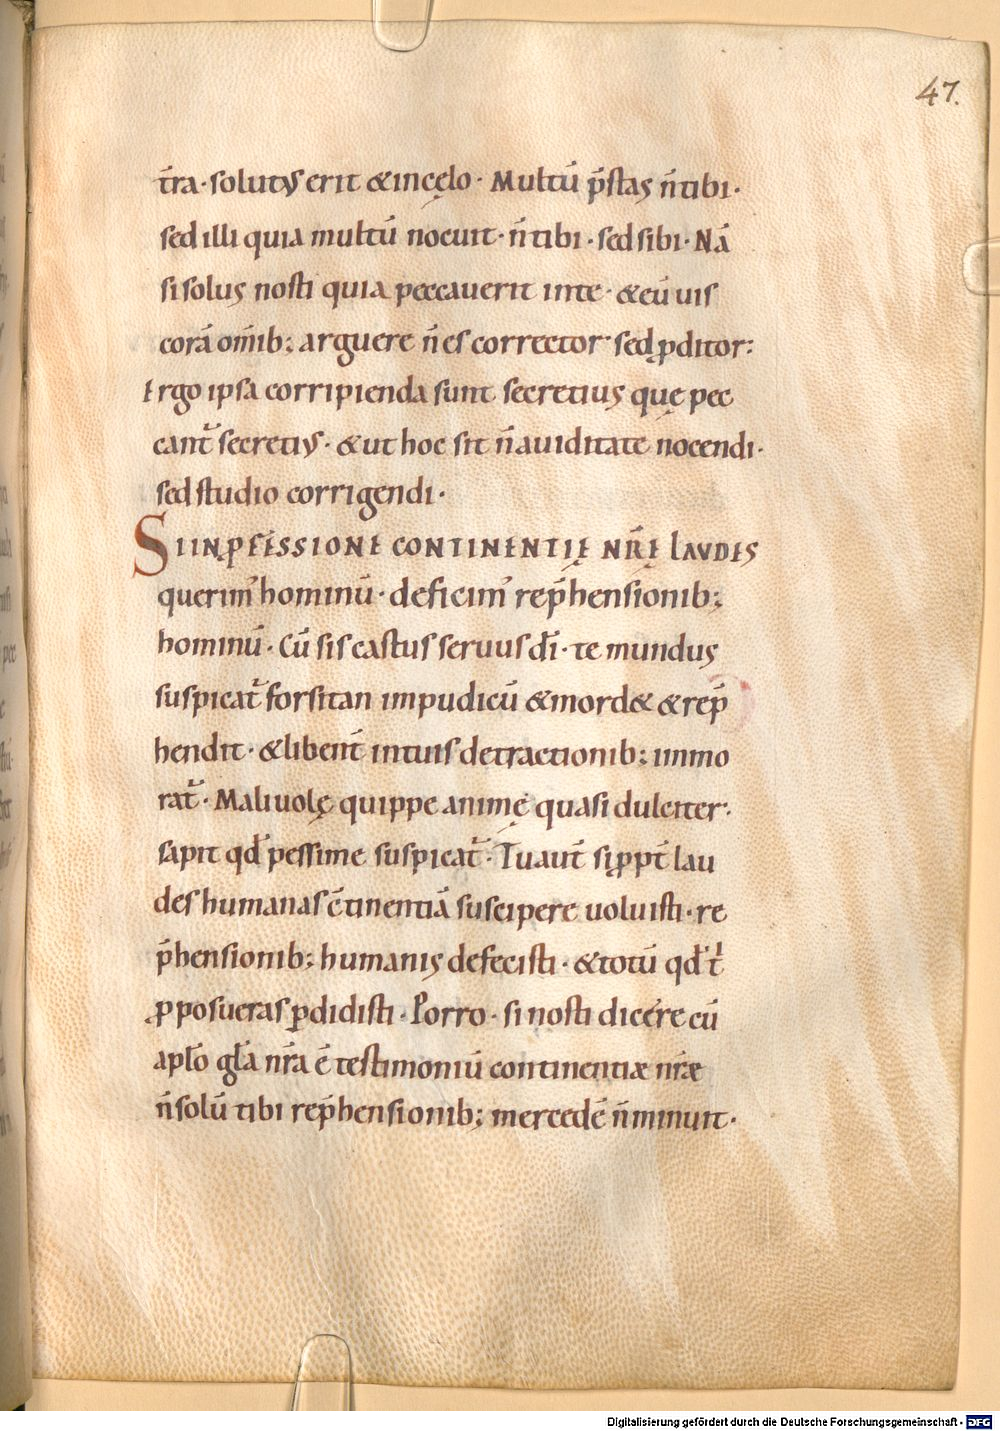 47.
t̄ra · solutꝰ erit & in cęlo · Multū p̄stas n̄ tibi ·
sed illi quia multū nocuit · n̄ tibi · sed sibi · Nā
si solus nosti quia peccauerit in te · & eū uis
corā om̄ib; arguere n̄ es corrector · sed ꝓditor:
Ergo ipsa corripienda sunt secretius quę pec
cant᷑ secretiꝰ · & ut hoc sit n̄ auiditate nocendi ·
sed studio corrigendi ·
SI IN ꝓFESSIONE CONTINENTIĘ NR̄Ę LAVDES
querim᷒ hominū · deficim᷒ rep̄hensionib;
hominū · Cū sis castus seruus dī · te mundus
suspicat᷑ forsitan impudicū & mord& & rep̄
hendit · & libent̄ in tuis detractionib; immo
rat᷑ · Maliuolę quippe animę quasi dulciter ·
sapit qđ pessime suspicat᷑ · Tu aut̄ si ꝓpt̄ lau
des humanas c̄tinentiā suscipere uoluisti · re
p̄hensionib; humanis defecisti · & totū qđ t᷒
ꝓposueras ꝑdidisti · Porro · si nosti dicere cū
aplo̅ gl̄a nr̄a ē testimoniū continentiæ nr̄æ
n̄ solū tibi rep̄hensionib; mercedē n̄ minuit ·
Digitalisierung gefördert durch die Deutsche Forschungsgemeinschaft - DFG